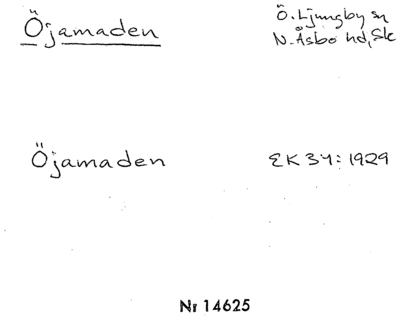 Öjamaden
Ö. Ljungby sn
N. Åsbo hd, Sk
Öjamaden
EK 34: 1929
Nr 14625